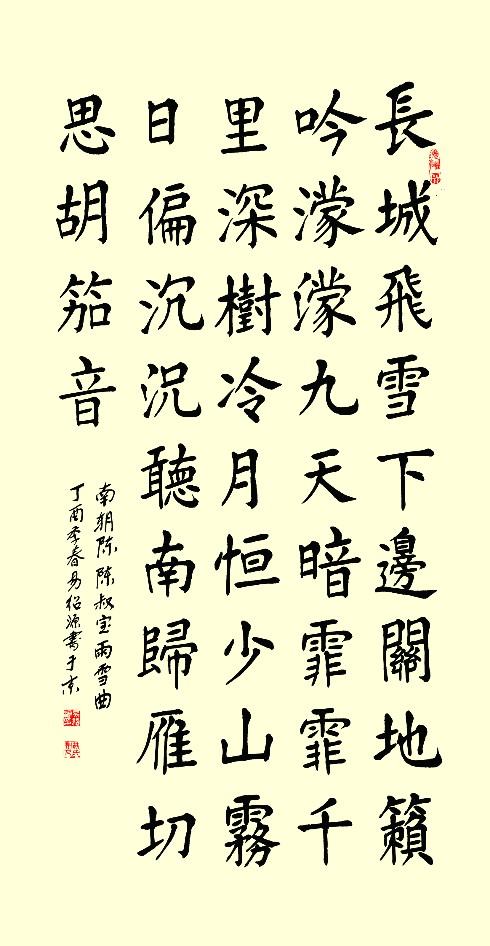 長城飛雪下邊關地籟
吟濛濛九天暗霏霏千
里深樹冷月恒少山霧
日偏沉沉聽南歸雁切
思胡笳音
南朝陈陈叔宝雨雪曲
丁酉季春易绍源書于京